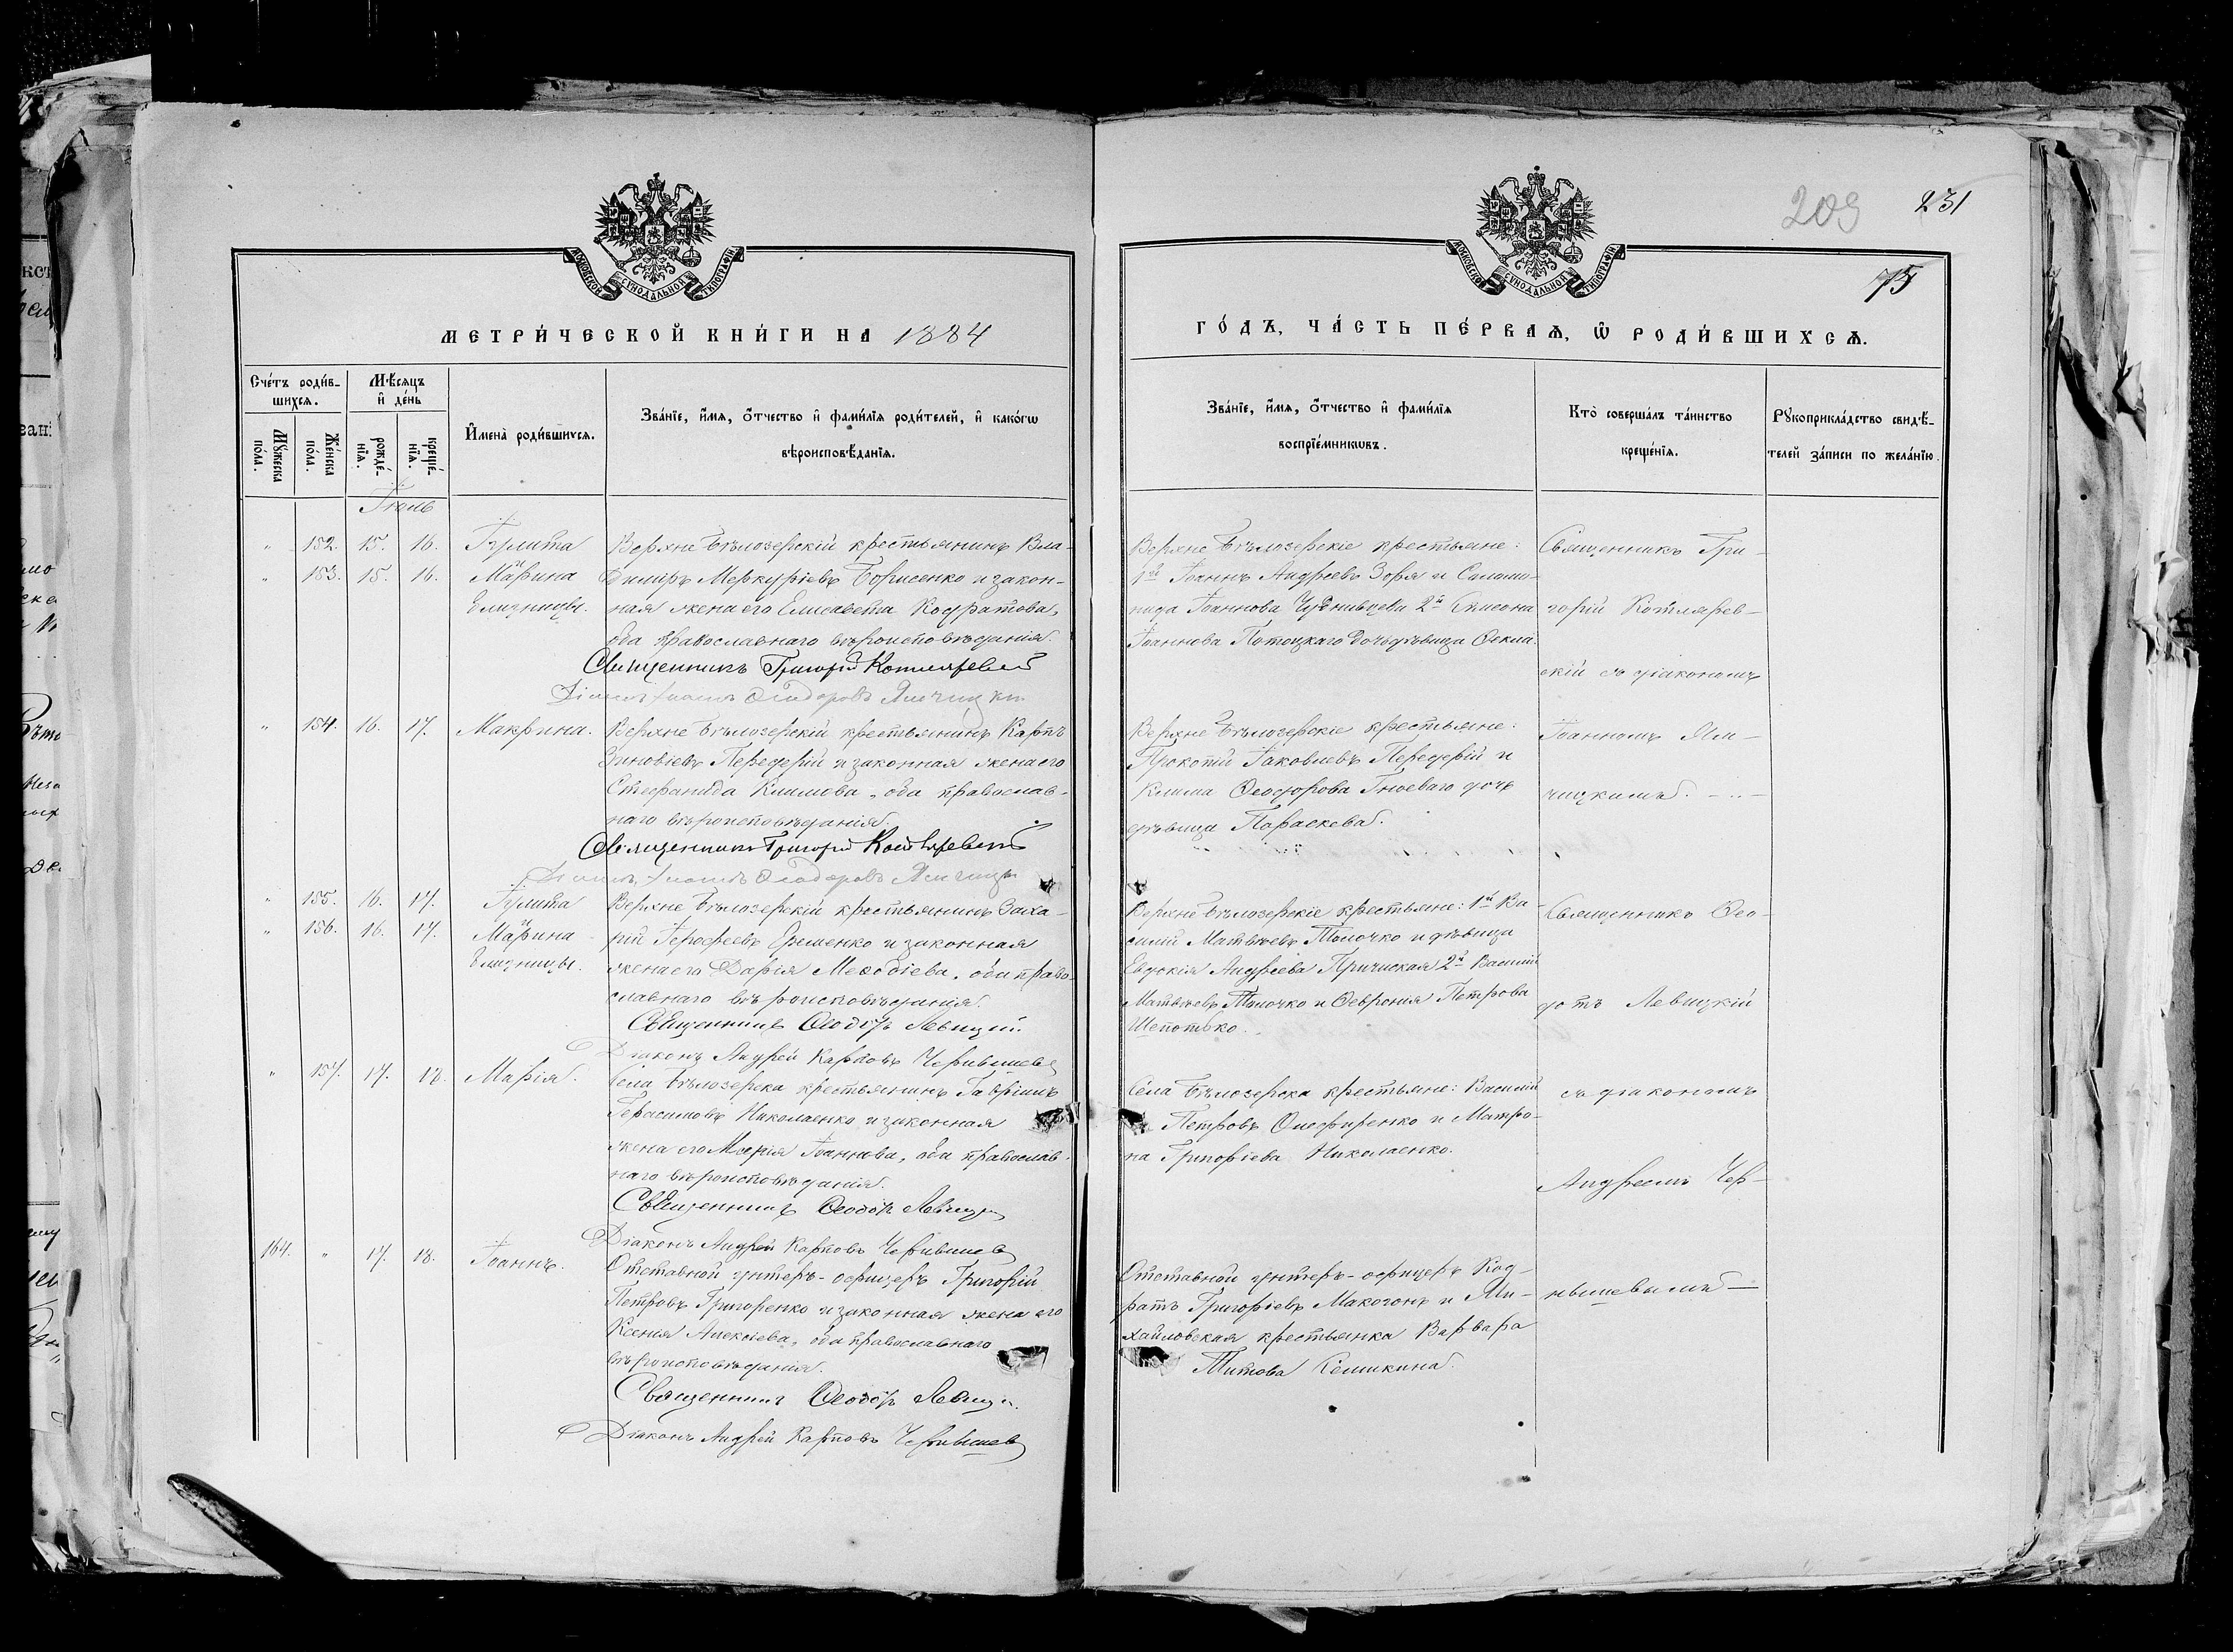 209 231
75
МОСКОВСКОЙ СѴНОДАЛЬНОЙ ТИПОГРАФІИ
МОСКОВСКОЙ СѴНОДАЛЬНОЙ ТИПОГРАФІИ
МЕТРИ́ЧЕСКОЙ КНИ́ГИ НА 1884
ГО́ДЪ, ЧА́СТЬ ПЕ́РВАѦ, Ѽ РОДИ́ВШИХСѦ.
Сче́тъ роди́в-
шихсѧ.
Мѣ́сѧцъ
и҆ де́нь
Мꙋ́жеска
по́ла.
Же́нска
по́ла.
рожде́-
нїѧ.
креще́-
нїѧ.
И҆мена̀ роди́вшихсѧ.
Зва́нїе, и҆́мѧ, ѻ҆́тчество и҆ фами́лїѧ роди́телей, и҆ како́гѡ
вѣроисповѣ́данїѧ.
Зва́нїе, и҆́мѧ, ѻ҆́тчество и҆ фами́лїѧ
воспрїе́мникѡвъ.
Кто̀ соверша́лъ та́инство
креще́нїѧ.
Рꙋкоприкла́дство свидѣ́-
телей за́писи по жела́нїю.
Іюль
" 152. 15. 16. Іулита
" 153. 15. 16. и Марина
близницы.
Верхне Бѣлозерскій крестьянинъ Вла-
диміръ Меркуріевъ Борисенко и закон-
ная жена его Елисавета Кодратова,
оба православнаго вѣроисповѣданія.
Священникъ Григорій Котляревскій
Діаконъ Іоаннъ Ѳеодоровъ Ямчицкій
Верхне Бѣлозерскіе крестьяне:
1й Іоаннъ Андреевъ Зоря и Салома-
нида Іоаннова 2й Симеона
Іоаннова Потоцкаго дочь дѣвица Ѳекла.
Священникъ Гри-
горій Котлярев-
скій съ діакономъ
" 154. 16. 17. Макрина.
Верхне Бѣлозерскій крестьянинъ Карпъ
Зиновіевъ Передерій и законная жена его
Стефанида Климова, оба православ-
наго вѣроисповѣданія.
Священникъ Григорій Котляревскій
Діаконъ Іоаннъ Ѳеодоровъ Ямчицкій
Верхне Бѣлозерскіе крестьяне:
Прокопій Іаковлевъ Передерій и
Клима Ѳеодорова Гноеваго дочь
дѣвица Параскева.
Іоанномъ Ям-
чицкимъ.
" 155. 16. 17. Іулита
" 156. 16. 17. и Марина
близницы.
Верхне Бѣлозерскій крестьянинъ Заха-
рій Ерофеевъ Еременко и законная
жена его Дарія Меѳодіева, оба право-
славнаго вѣроисповѣданія.
Священникъ Ѳеодотъ Левицкій.
Діаконъ Андрей Карповъ Чернышевъ
Верхне Бѣлозерскіе крестьяне: 1й Ва-
силій Матвѣевъ Толочко и дѣвица
Евдокія Андреева 2й Василій
Матвѣевъ Толочко и Ѳеврония Петрова
Шепотько.
Священникъ Ѳео-
дотъ Левицкій
" 157. 17. 18. Марія.
Села Бѣлозерска крестьянинъ Гавріилъ
Герасимовъ Николаенко и законная
жена его Марія Іоаннова, оба православ-
наго вѣроисповѣданія.
Священникъ Ѳеодотъ Левицкій
Діаконъ Андрей Карповъ Чернышевъ
Села Бѣлозерска крестьяне: Василій
Петровъ Онофриенко и Матро-
на Григоріева Николаенко.
съ діакономъ
Андреемъ Чер-
164. " 17. 18. Іоаннъ.
Отставной унтеръ-офицеръ Григорій
Петровъ Григоренко и законная жена его
Ксенія Алексіева, оба православнаго
вѣроисповѣданія.
Священникъ Ѳеодотъ Левицкій.
Діаконъ Андрей Карповъ Чернышевъ
Отставной унтеръ-офицеръ Код-
ратъ Григоріевъ Макогонъ и Ми-
хайловская крестьянка Варвара
Титова
нышевымъ